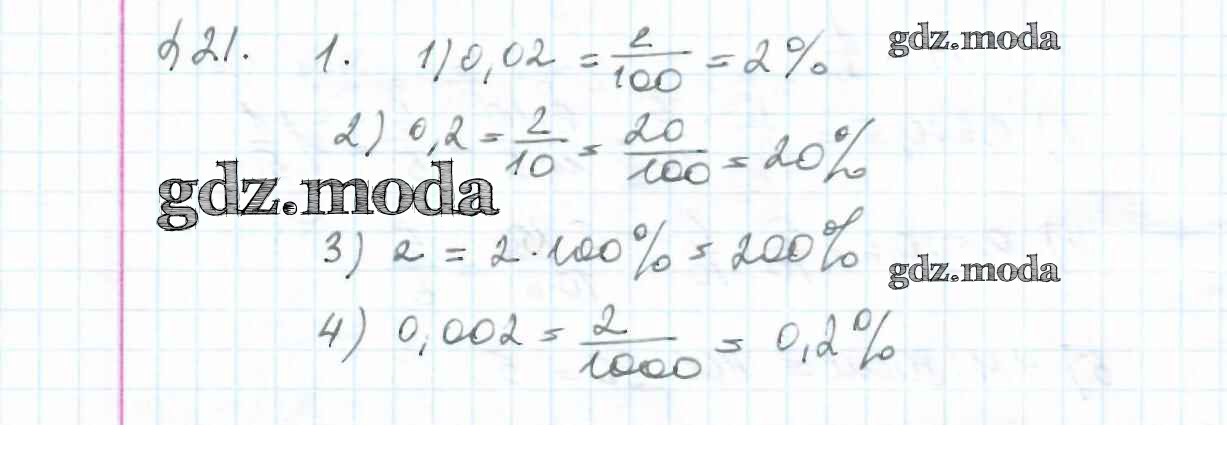 § 21. 1. 1) 0,02 = 2/100 = 2% gdz.moda
2) 0,2 = 2/10 = 20/100 = 20%
gdz.moda
3) 2 = 2·100% = 200% gdz.moda
4) 0,002 = 2/1000 = 0,2%